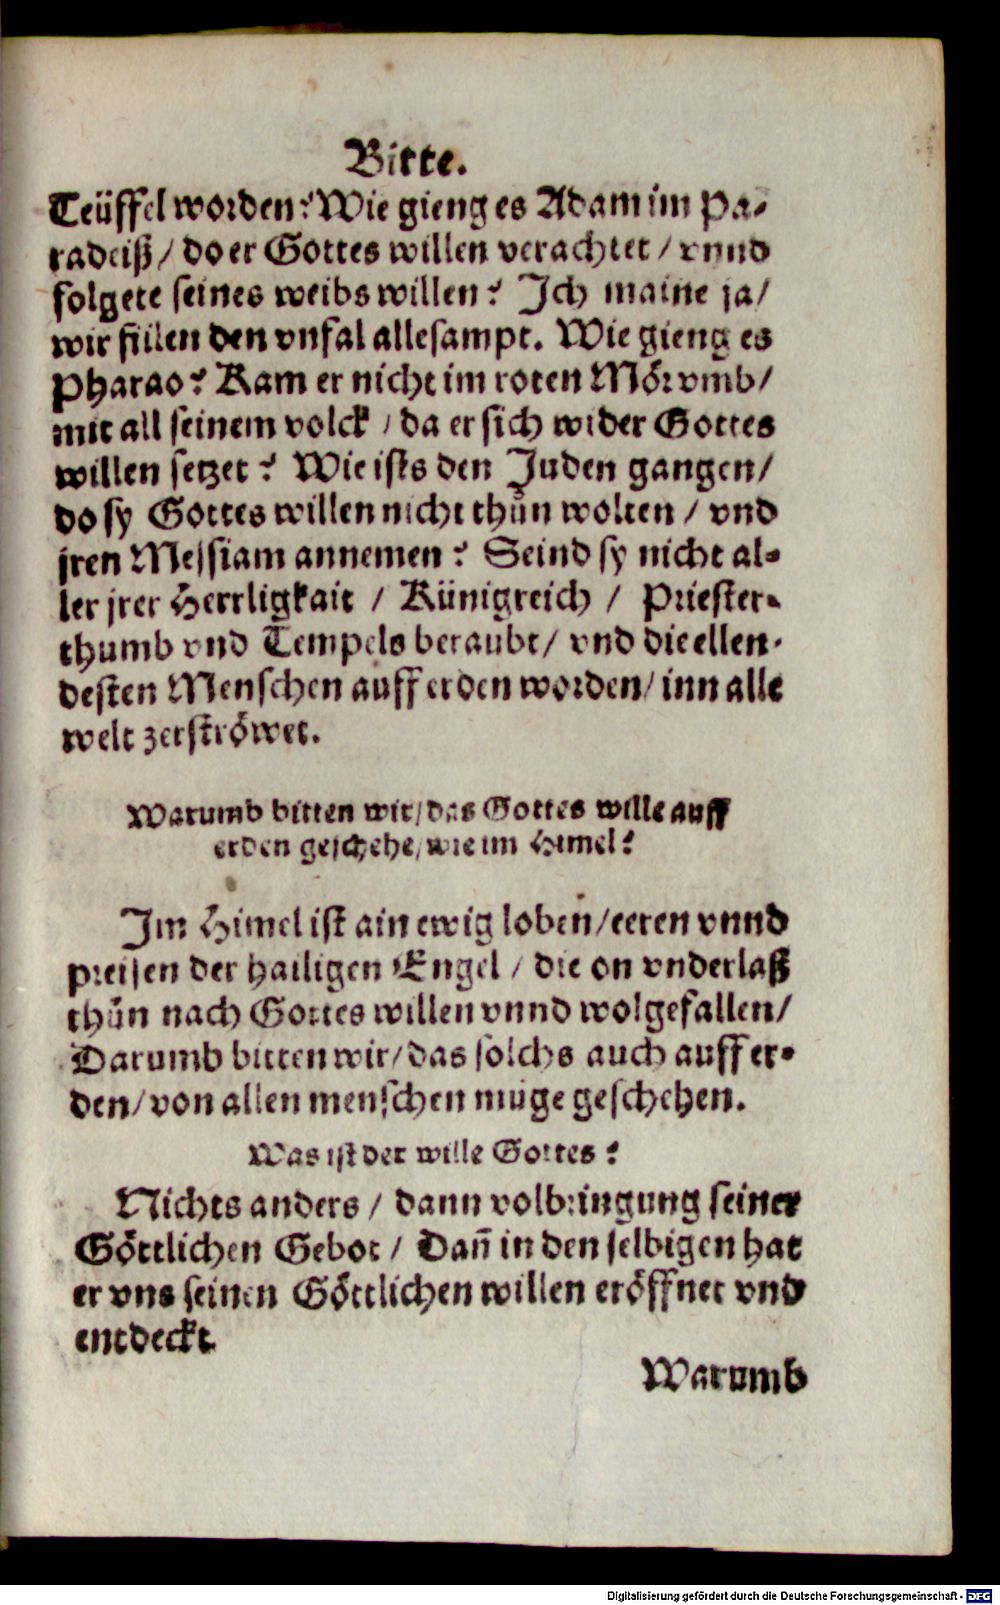 Bitte.
Teüffel worden? Wie gieng es Adam im Pa-
radeiß / do er Gottes willen verachtet / vnnd
folgete seines weibs willen? Ich maine ja /
wir fülen den vnfal allesampt. Wie gieng es
Pharao? Kam er nicht im roten Mör vmb /
mit all seinem volck / da er sich wider Gottes
willen setzet? Wie ists den Juden gangen /
do sy Gottes willen nicht thůn wolten / vnd
jren Messiam annemen? Seind sy nicht al-
ler jrer Herrligkait / Künigreich / Priester-
thumb vnd Tempels beraubt / vnd die ellen-
desten Menschen auff erden worden / inn alle
welt zerströwet.
Warumb bitten wir / das Gottes wille auff
erden geschehe / wie im Himel?
Im Himel ist ain ewig loben / eeren vnnd
preisen der hailigen Engel / die on vnderlaß
thůn nach Gottes willen vnnd wolgefallen /
Darumb bitten wir / das solchs auch auff er-
den / von allen menschen müge geschehen.
Was ist der wille Gottes?
Nichts anders / dann volbringung seiner
Göttlichen Gebot / Dañ in den selbigen hat
er vns seinen Göttlichen willen eröffnet vnd
entdeckt.
Warumb
Digitalisierung gefördert durch die Deutsche Forschungsgemeinschaft - DFG